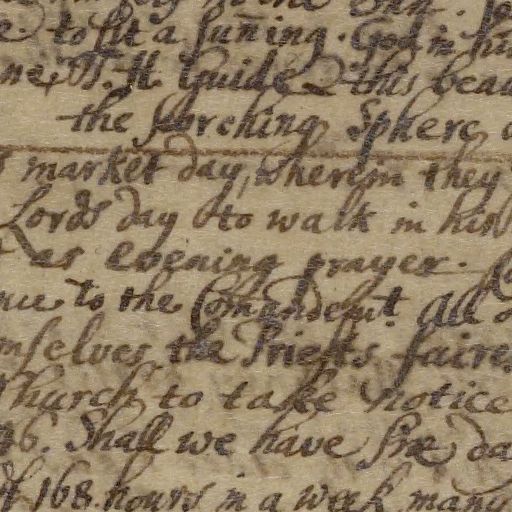 to sit a sun̄ing. God in his
Guide this beau
the scorching Sphere
market day, wherein they
Lords day to walk in his
as evening prayer.
to the Com̄andemt. All
mselves the Priests faires
Church to take notice
36. Shall we have six da
of 168. hours in a week many